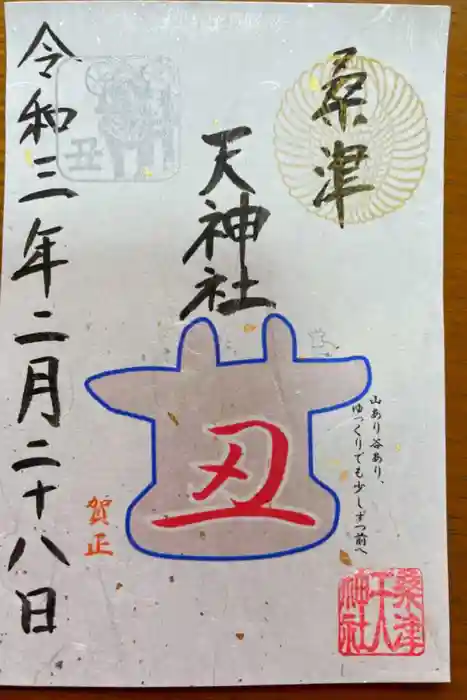 桑津
天神社
丑
山あり谷あり、
ゆっくりでも少しずつ前へ
賀正
丑
令和三年二月二十八日
桑津
天
神社